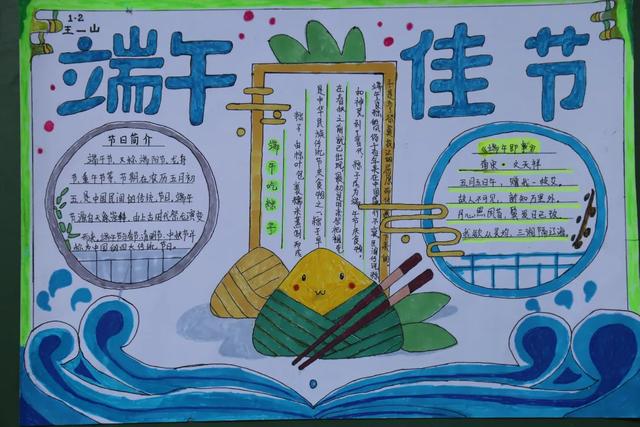 1-2
王一山
端午 佳节
节日简介
端午节,又称端阳节、龙舟
节、重午节等,节期在农历五月初
五,是中国民间的传统节日。端午
节源自天象崇拜,由上古时代祭龙演变
而来。端午节与春节、清明节、中秋节并
称为中国的四大传统节日。
端午吃粽子
粽子,由粽叶包裹糯米蒸制而成
是中华民族传统节庆食物之一。粽子早
在春秋之前就已出现,最初是用来祭祀祖先
和神灵,到了晋代,粽子成为端午节庆食物。
端午食粽的风俗,千百年来在中国盛行不衰
《端午即事》
南宋·文天祥
五月五日午,赠我一枝艾。
故人不可见,新知万里外。
丹心照夙昔,鬓发日已改。
我欲从灵均,三湘隔辽海。